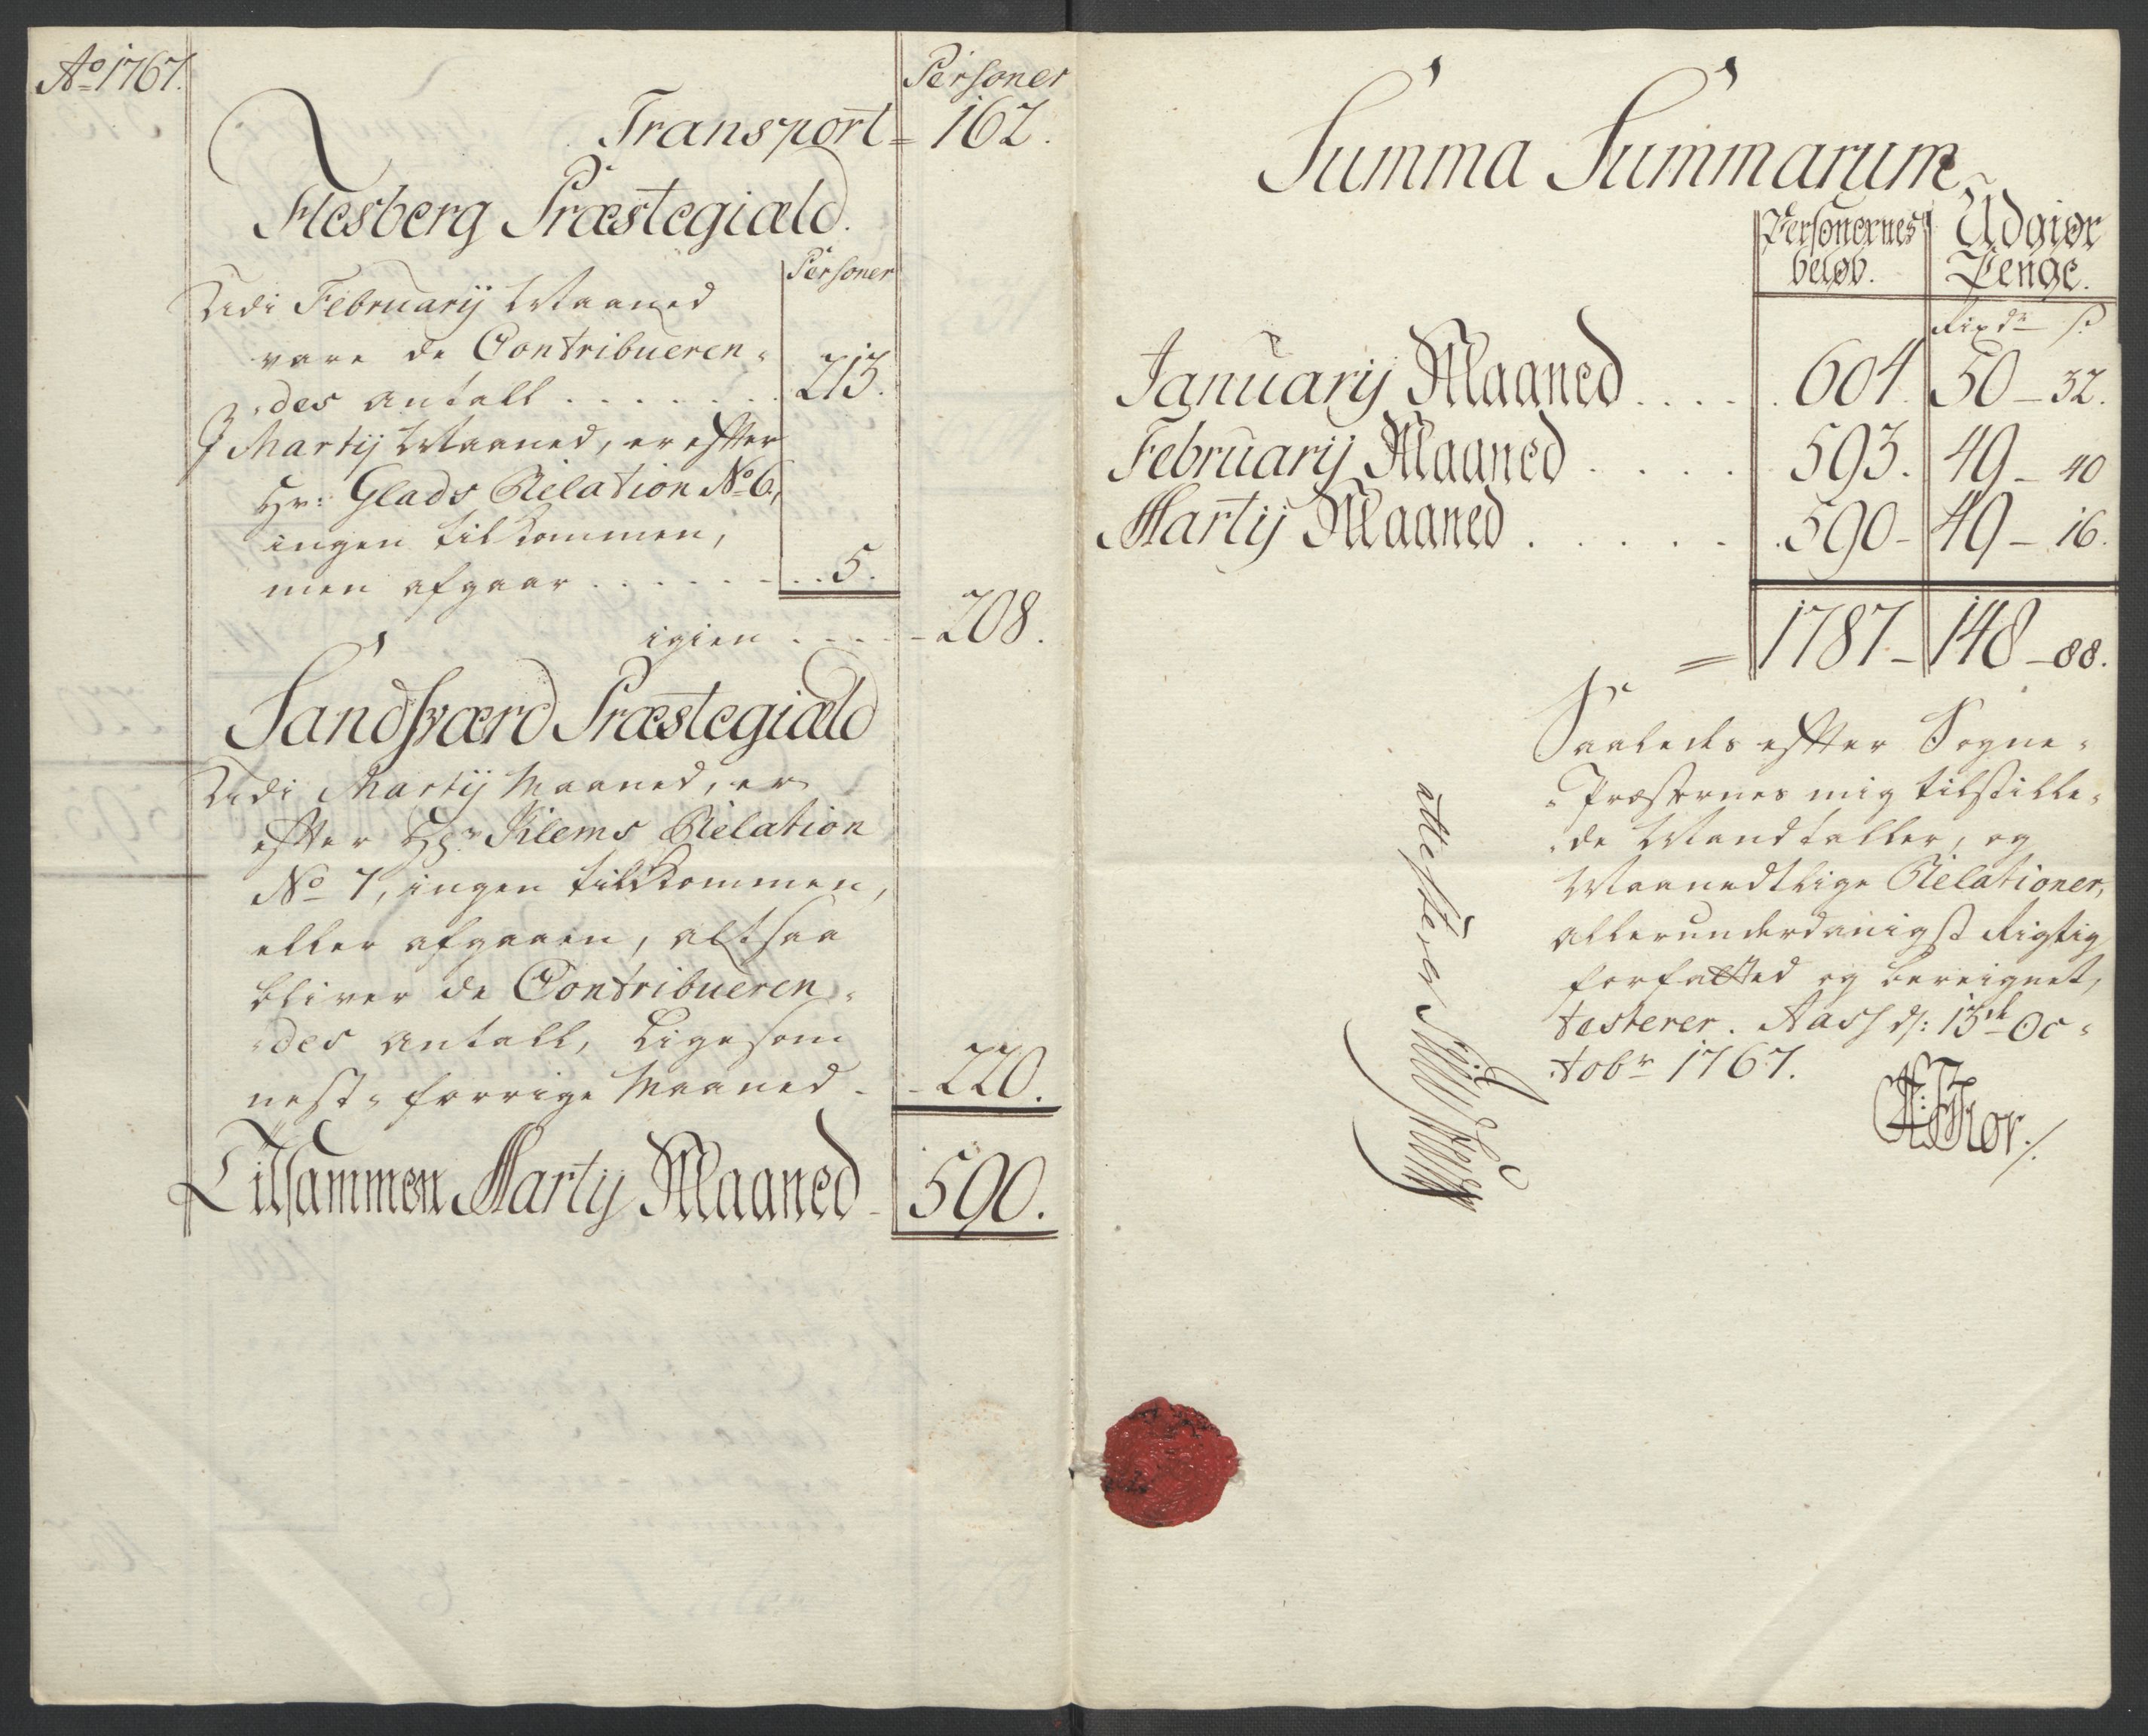 Ao 1767.
Personer
Transport = 162.
Flesberg Præstegiæld.
Personer
Udi Februarij Maaned
vare de Contribueren-
des antall . . . . . . . 213.
I Martij Maaned, er effter
Hr: Glads Relation No 6,
ingen tilkommen,
men afgaar . . . . . . . 5.
igien . . . . 208.
Sandsværd Præstegiæld
Udi Martij Maaned, er
effter Hr. Klems Relation
No 7, ingen tilkommen,
eller afgaaen, altsaa
bliver de Contribueren-
des antall, ligesom
nest forrige Maaned - 220.
Tilsammen Martij Maaned - 590.
Summa Summarum
Personernes beløb. Udgiør Penge.
Rixdr ß
Januarij Maaned . . . . . 604. 50 - 32.
Februarij Maaned . . . . . 593. 49 - 40
Martij Maaned . . . . . 590 - 49 - 16.
= 1787 - 148 - 88.
Saaledes effter Sogne-
Præsternes mig tilstille-
de Mandtaller, og
Maanedtlige Relationer,
allerunderdanigst Rigtig
forfatted og bereignet,
testerer. Aass d: 13de Oc-
tobr 1767.
attesterer